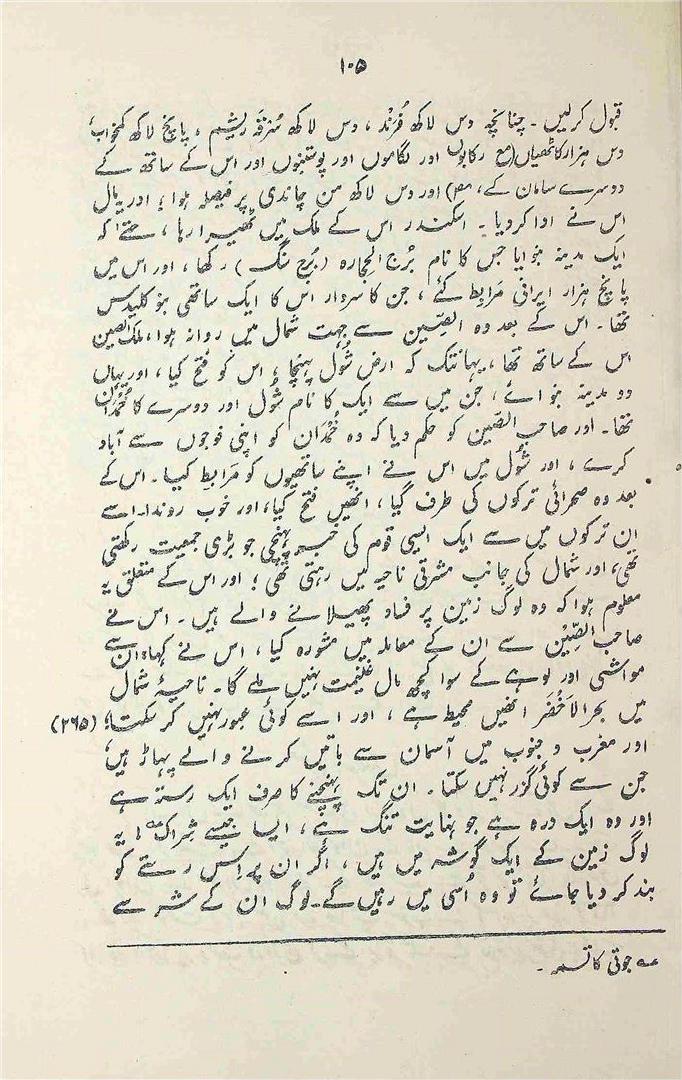 ۱۰۵
قبول کرلیں ۔ چنانچہ دس لاکھ فُرِنْد ، دس لاکھ سُرقۂ ریشم ، پانچ لاکھ کمخواب،
دس ہزار کاٹھیاں (مع رکابوں اور لگاموں اور پوستینوں اور اس کے ساتھ کے
دوسرے سامان کے، مع) اور دس لاکھ من چاندی پر فیصلہ ہوا ؛ اور یہ مال
اس نے ادا کردیا ۔ اسکندر اس کے ملک میں ٹھیرا رہا ، حتےٰ کہ
ایک مدینہ بنوایا جس کا نام بُرج الحِجارہ (برج سنگ) رکھا ، اور اس میں
پانچ ہزار ایرانی مَرابِط کئے ، جن کا سردار اس کا ایک ساتھی بنو کلیدس
تھا ۔ اس کے بعد وہ الصِّین سے جہت شمال میں روانہ ہوا ، ملک الصین
اس کے ساتھ تھا ، یہانتک کہ ارض شُول پہنچا ، اس کو فتح کیا ، اور یہاں
دو مدینہ بنوائے ، جن میں سے ایک کا نام شُول اور دوسرے کا خُمْدان
تھا ۔ اور صاحب الصِّین کو حکم دیا کہ وہ خُمْدَان کو اپنی فوجوں سے آباد
کرے ، اور شُول میں اس نے اپنے ساتھیوں کو مَرابِط کیا ۔ اس کے
بعد وہ صحرائی ترکوں کی طرف گیا ، انھیں فتح کیا، اور خوب روندا۔ اسے
ان ترکوں میں سے ایک ایسی قوم کی خبر پہنچی جو بڑی جمعیت رکھتی
تھی، اور شمال کی جانب مشرقی ناحیہ میں رہتی تھی ؛ اور اس کے متعلق یہ
معلوم ہوا کہ وہ لوگ زمین پر فساد پھیلانے والے ہیں ۔ اس نے
صاحب الصِّیْن سے ان کے معاملہ میں مشورہ کیا ، اس نے کہا: ان سے
مواشی اور لوہے کے سوا کچھ مال غنیمت نہیں ملے گا ۔ ناحیۂ شمال
میں بحر الاَخْضَر انھیں محیط ہے ، اور اسے کوئی عبور نہیں کر سکتا؛ (۲۶۵)
اور مغرب و جنوب میں آسمان سے باتیں کرنے والے پہاڑ ہیں،
جن سے کوئی گزر نہیں سکتا ۔ ان تک پہنچنے کا صرف ایک رستہ ہے
اور وہ ایک درہ ہے جو نہایت تنگ ہے ، ایسا جیسے شِراک عہ ! یہ
لوگ زمین کے ایک گوشہ میں ہیں ، اگر ان پر اِس رستے کو
بند کر دیا جائے تو وہ اُسی میں رہیں گے ۔ لوگ ان کے شر سے
عہ جوتی کا تسمہ ۔